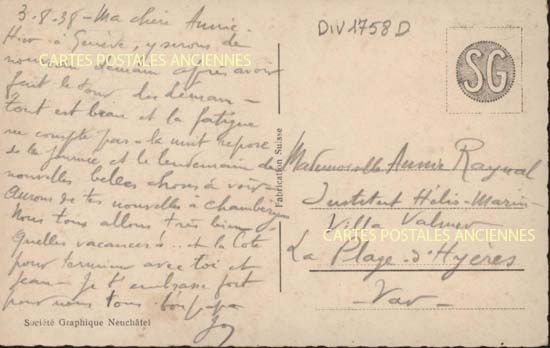 3-8-38 - Ma chère Annie.
Hier à Genève, y serons de
nouveau demain après avoir
fait le tour du Léman -
tout est beau et la fatigue
ne compte pas - la nuit repose
de la journée et le lendemain de
nouvelles belles choses à voir
Aurons de tes nouvelles à Chambéry
Nous tous allons très bien -
Quelles vacances !.. et la Côte
pour terminer avec toi et
Jean - Je t'embrasse fort
pour nous tous. bon papa
DIV1758D
SG
Fabrication Suisse
Mademoiselle Annie Raynal
Institut Hélio-Marin
Villa Valmer
La Plage d'Hyères
Var -
Société Graphique Neuchâtel
CARTES POSTALES ANCIENNES
CARTES POSTALES ANCIENNES